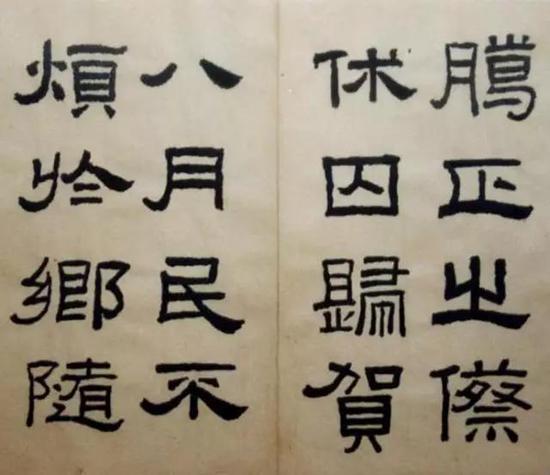 臈正之傺
休囚歸賀
八月民不
煩於鄉隨